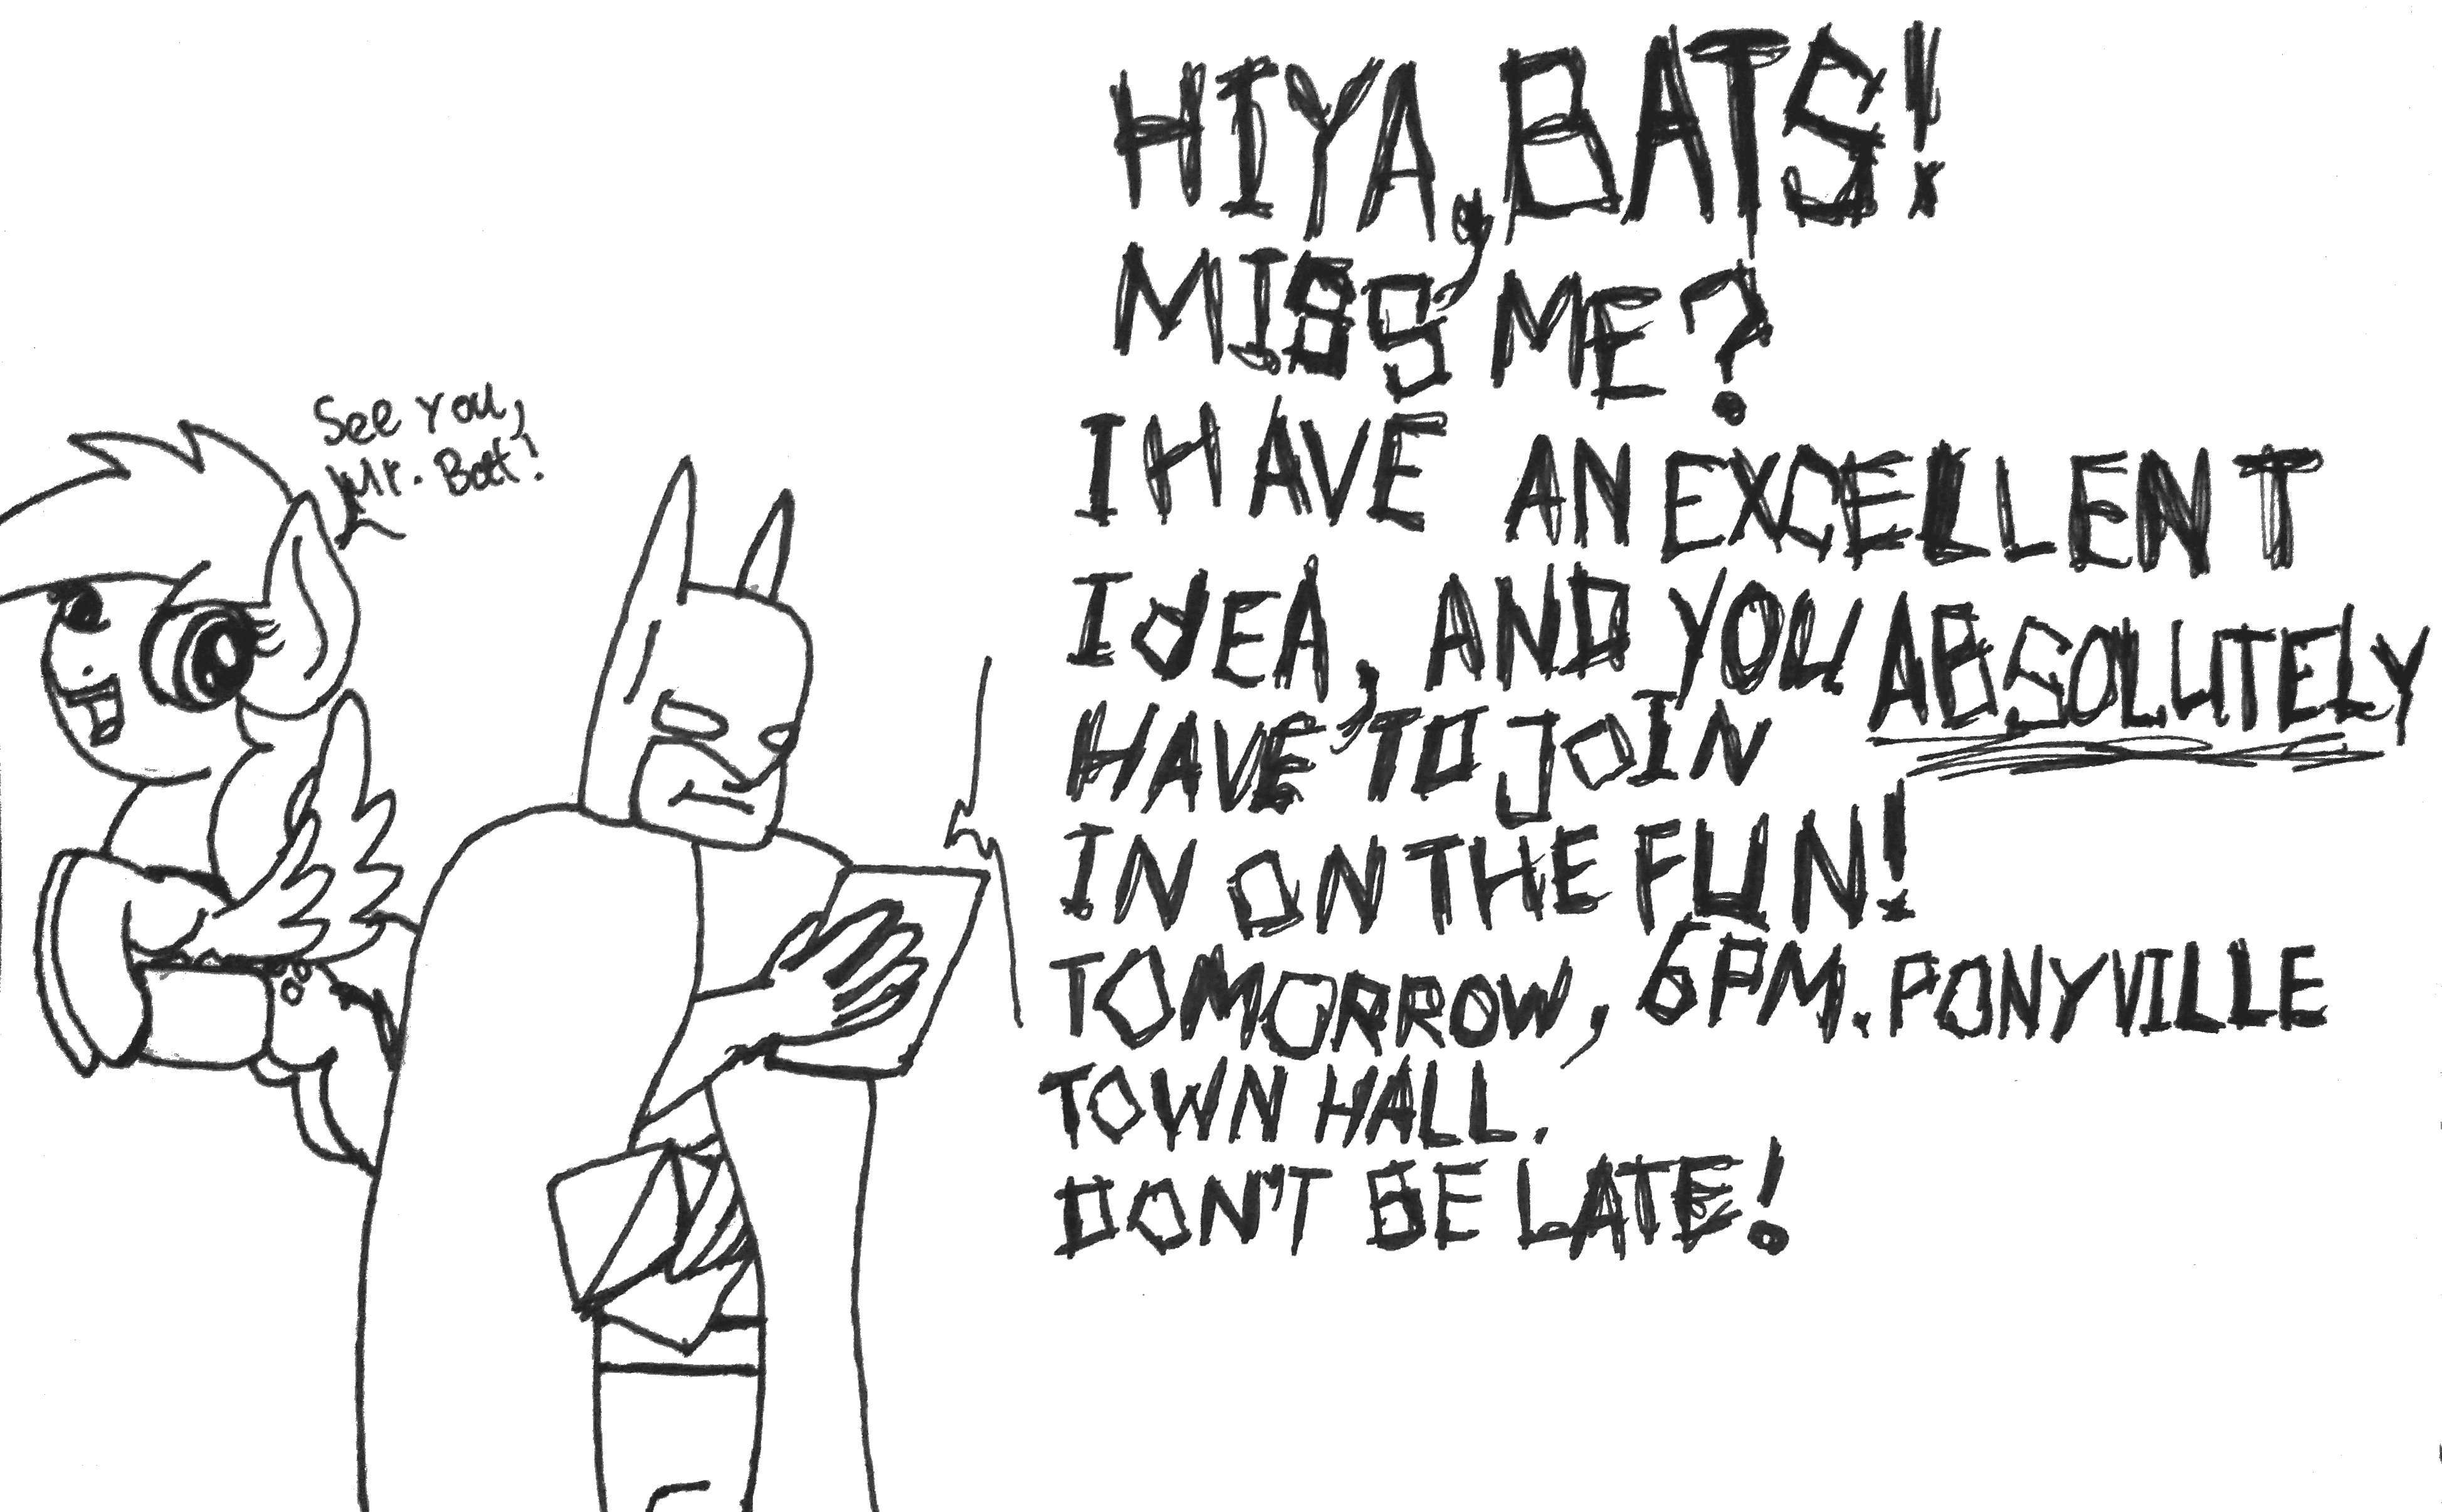 See you,
Mr. Batt!
HIYA, BATS!
MISS ME?
I HAVE AN EXCELLENT
IdEA, AND YOU ABSOLUTELY
HAVE TO JOIN
IN ON THE FUN!
TOMORROW, 6PM. PONYVILLE
TOWN HALL.
DON'T BE LATE!